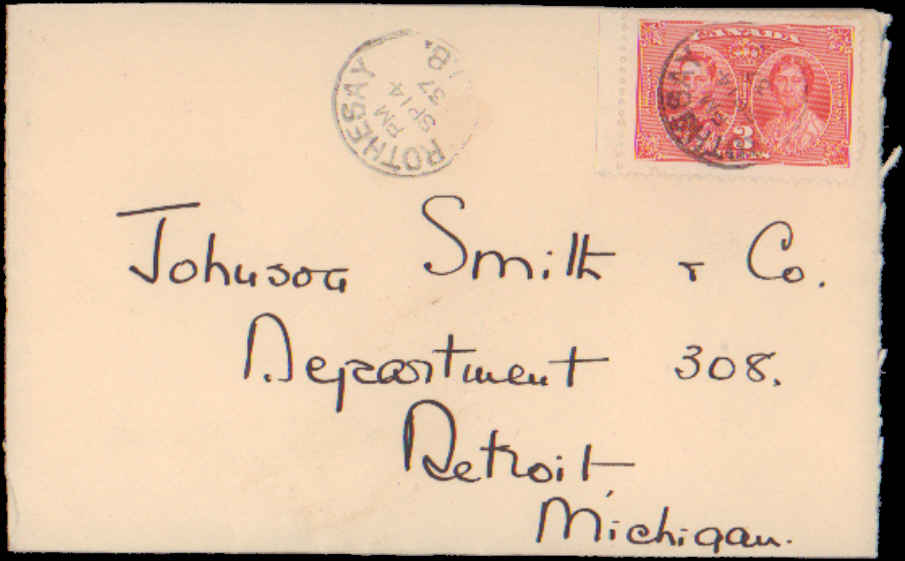 ROTHESAY
PM
SP 14
37
.B.
CANADA
ROTHESAY
PM
14
3
Johnson Smith & Co.
Department 308.
Detroit,
Michigan.